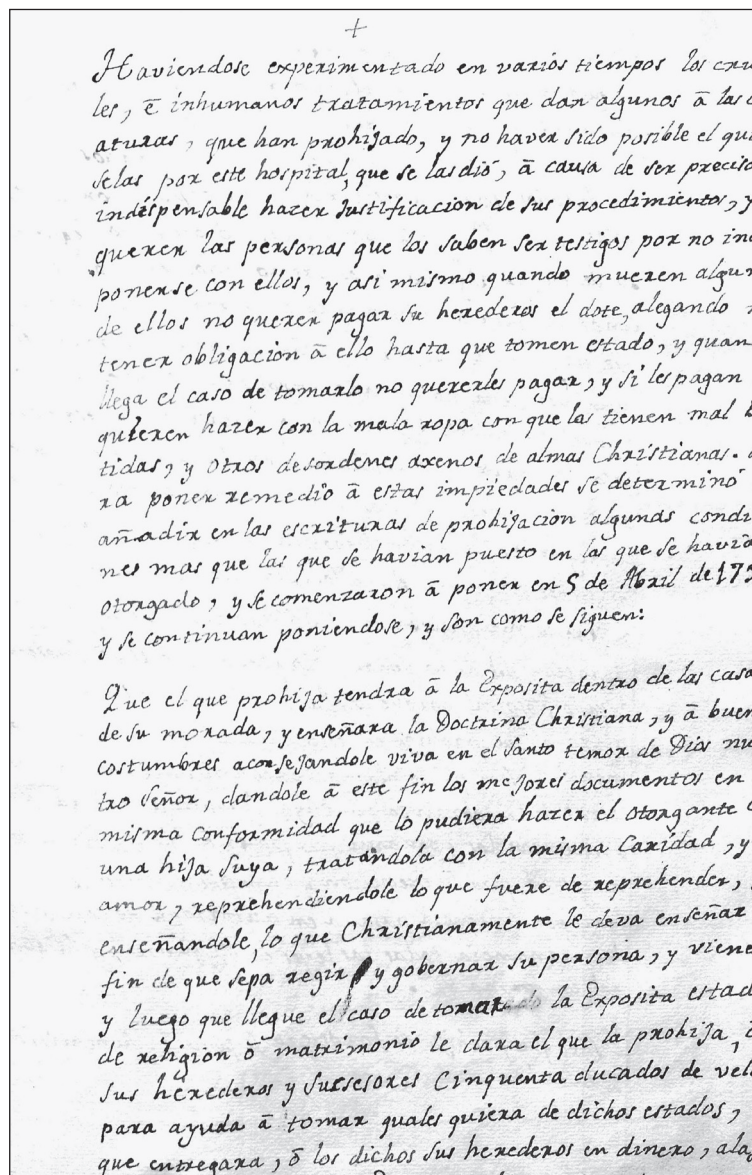 +
Haviendose experimentado en varios tiempos los cru
les, ē inhumanos tratamientos que dan algunos ā las c
aturas, que han prohijado, y no haver sido posible el qu
selas por este hospital, que se las dió, ā causa de ser preciso
indispensable hazer Justificacion de sus procedimientos, y
querer las personas que los saben ser testigos por no in
ponerse con ellos, y asi mismo quando mueren algun
de ellos no queren pagar su herederos el dote, alegando n
tener obligacion ā ello hasta que tomen estado, y quan
llega el caso de tomarlo no quererles pagar, y si les pagan
quieren hazer con la mala ropa con que las tienen mal
tidas, y otros desordenes axenos de almas Christianas.
ra poner remedio ā estas impiedades se determinó
añadir en las escrituras de prohijacion algunas condi
nes mas que las que se havian puesto en las que se havia
otorgado, y se comenzaron ā poner en 5 de Abril de 17
y se continuan poniendose, y son como se siguen:
Que el que prohija tendra ā la Exposita dentro de las casa
de su morada, y enseñara la Doctrina Christiana, y ā buen
costumbres aconsejandole viva en el santo temor de Dios nu
tro Señor, dandole ā este fin los mejores documentos en
misma conformidad que lo pudiera hazer el otorgante
una hija suya, tratandola con la misma Caridad, y
amor, reprehendiendole lo que fuere de reprehender,
enseñandole, lo que Christianamente le deva enseñar
fin de que sepa regir y gobernar su persona, y viene
y luego que llegue el caso de tomar la Exposita estad
de religion ō matrimonio le dara el que la prohija,
sus herederos y sucsesores Cinquenta ducados de vel
para ayuda ā tomar quales quiera de dichos estados,
que entregara, ō los dichos sus herederos en dinero, alo